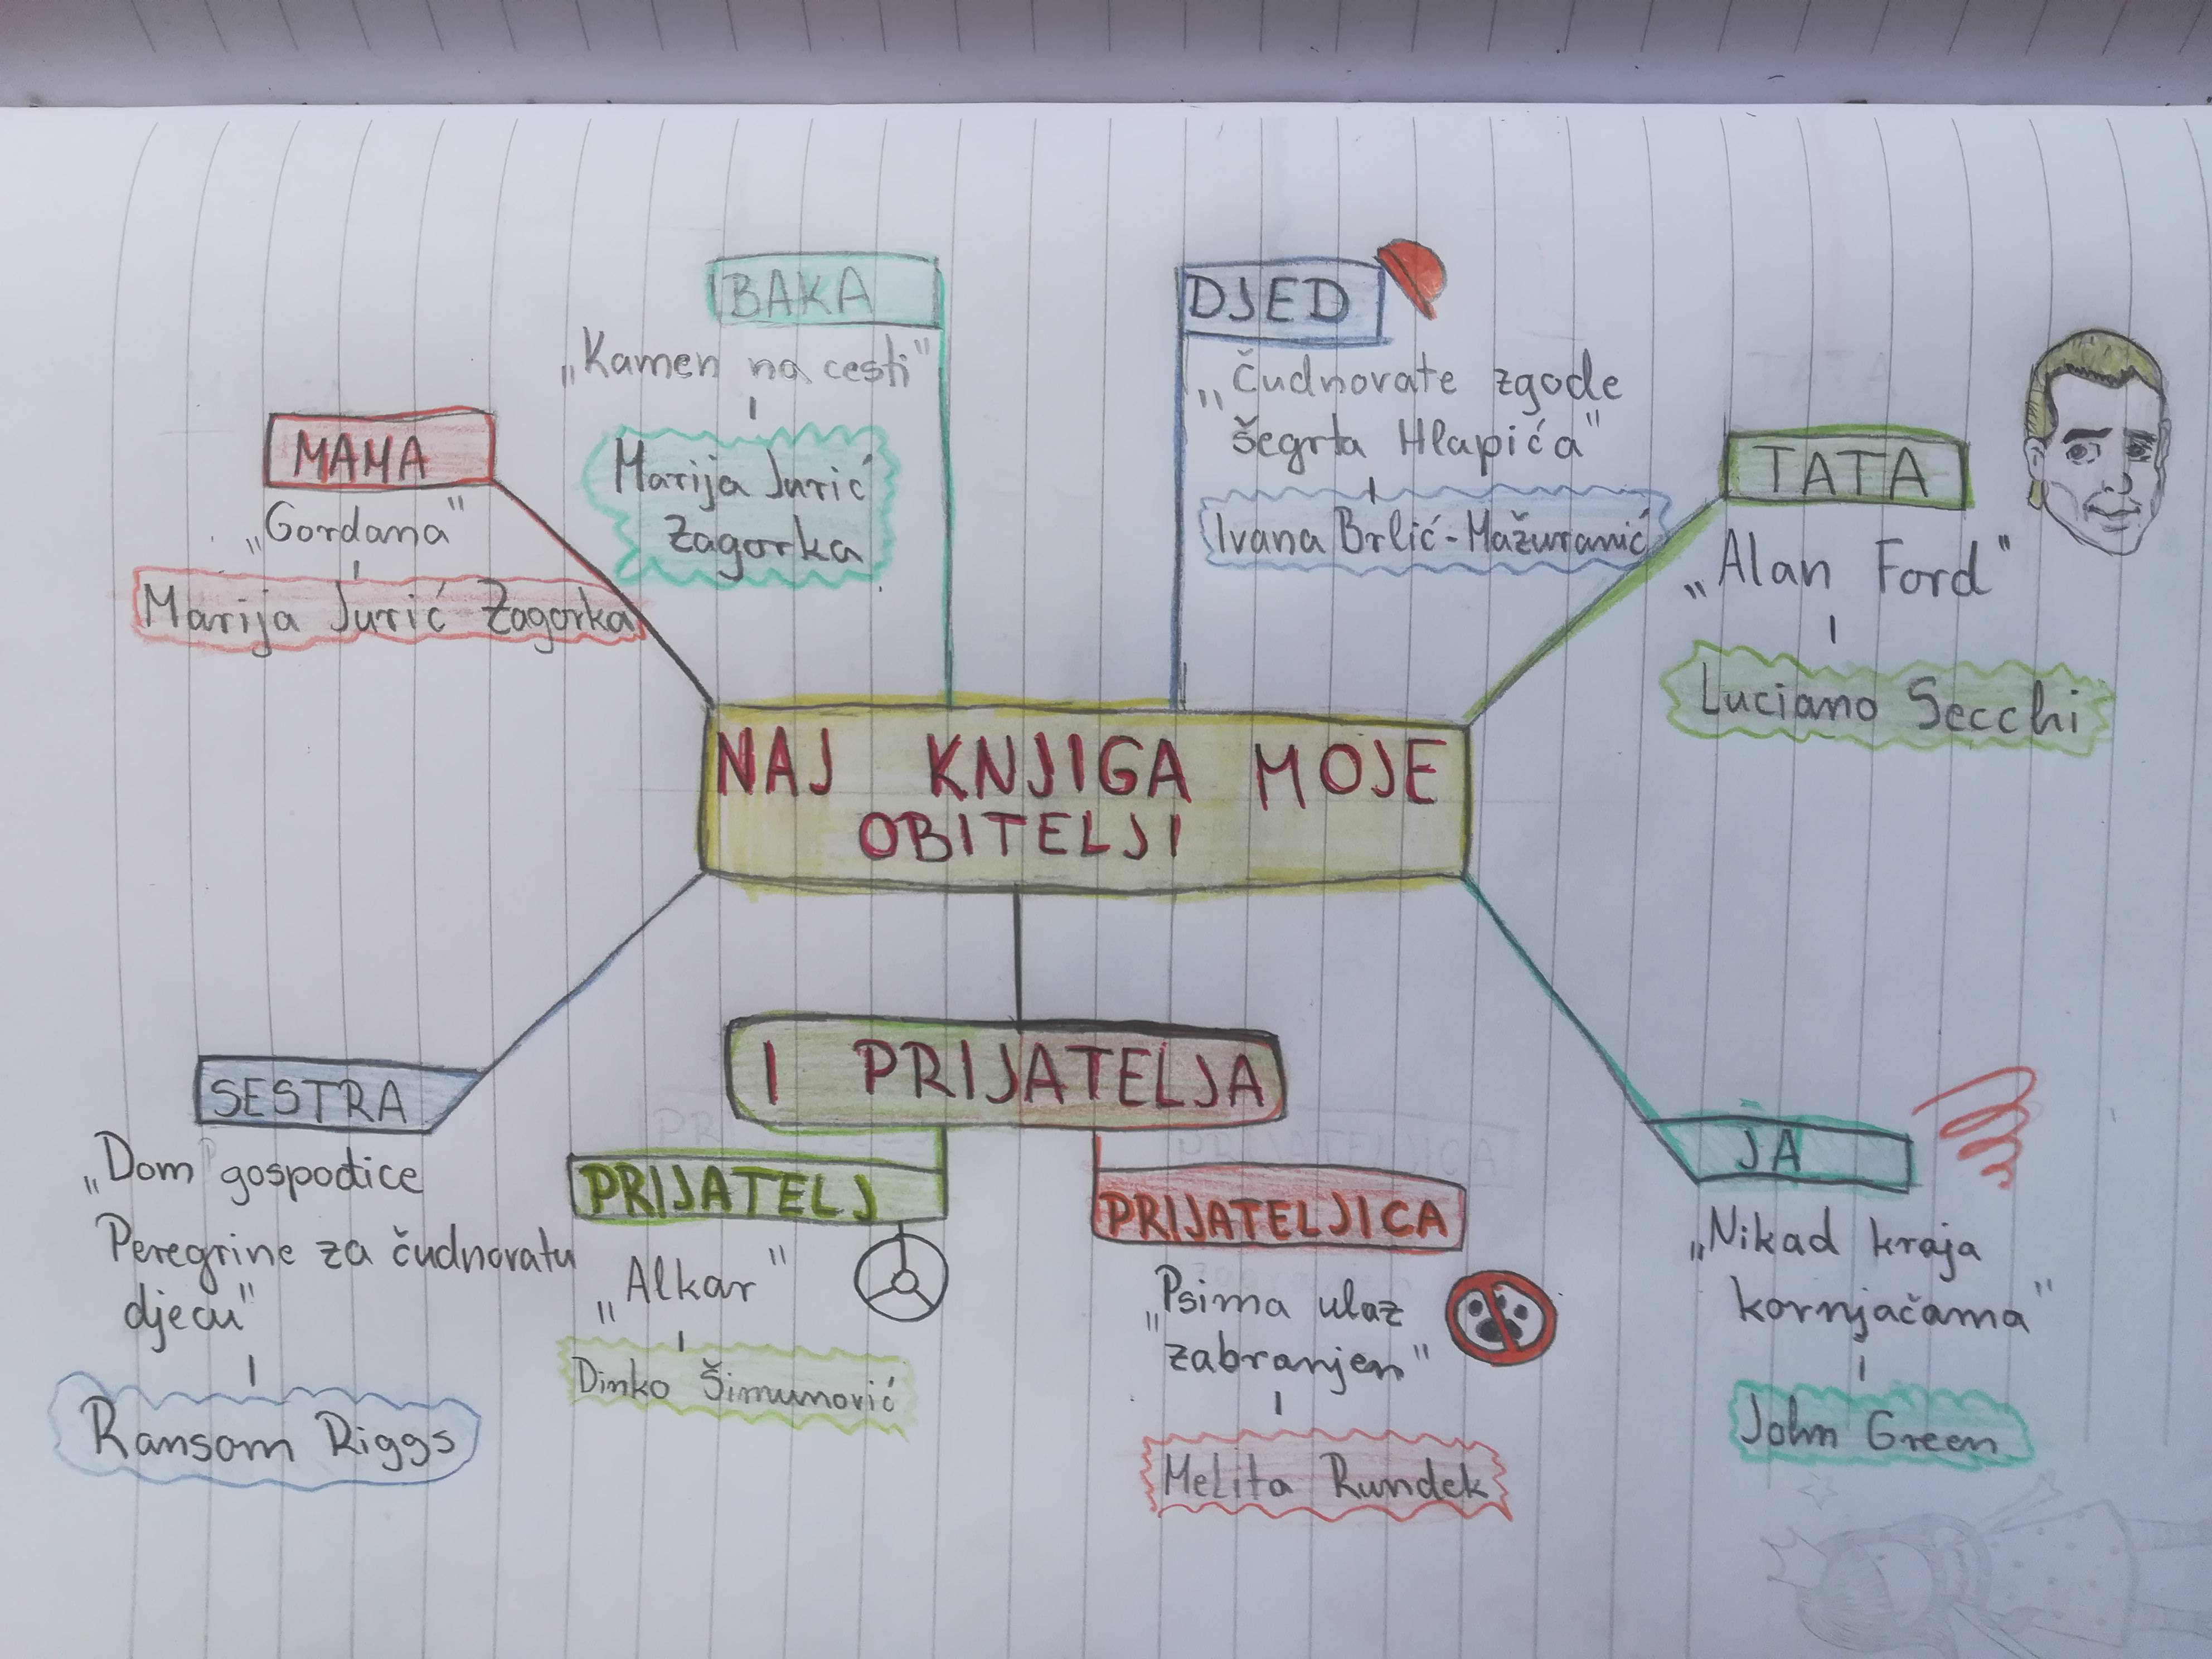 BAKA
„Kamen na cesti"
Marija Jurić
Zagorka
DJED
„Čudnovate zgode
šegrta Hlapića"
Ivana Brlić-Mažuranić
MAMA
„Gordana"
Marija Jurić Zagorka
TATA
„Alan Ford"
Luciano Secchi
NAJ KNJIGA MOJE
OBITELJI
I PRIJATELJA
SESTRA
„Dom gospođice
Peregrine za čudnovatu
djecu"
Ransom Riggs
PRIJATELJ
„Alkar"
Dinko Šimunović
PRIJATELJICA
„Psima ulaz
zabranjen"
Melita Rundek
JA
„Nikad kraja
kornjačama"
John Green